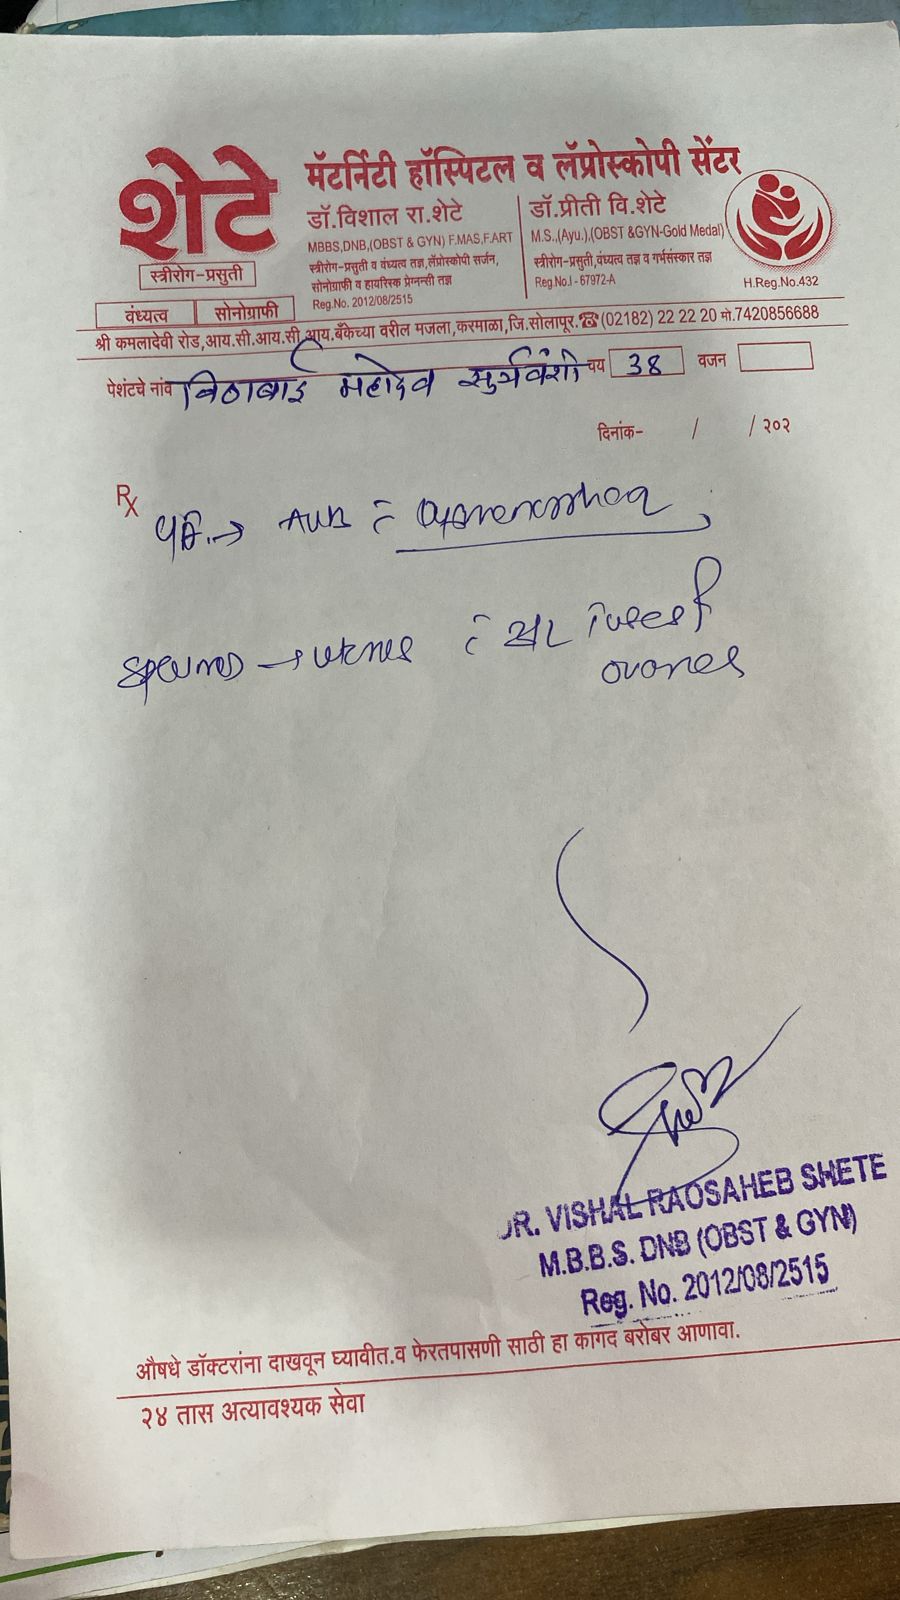 शेटे
स्त्रीरोग-प्रसुती
वंध्यत्व सोनोग्राफी
मॅटर्निटी हॉस्पिटल व लॅप्रोस्कोपी सेंटर
डॉ.विशाल रा.शेटे
MBBS,DNB,(OBST & GYN) F.MAS,F.ART
स्त्रीरोग-प्रसुती व वंध्यत्व तज्ञ,लॅप्रोस्कोपी सर्जन,
सोनोग्राफी व हायरिस्क प्रेग्नन्सी तज्ञ
Reg.No. 2012/08/2515
डॉ.प्रीती वि.शेटे
M.S.,(Ayu.),(OBST &GYN-Gold Medal)
स्त्रीरोग-प्रसुती,वंध्यत्व तज्ञ व गर्भसंस्कार तज्ञ
Reg.No.I - 67972-A
H.Reg.No.432
श्री कमलादेवी रोड,आय.सी.आय.सी.आय.बँकेच्या वरील मजला,करमाळा,जि.सोलापूर.☎(02182) 22 22 20 मो.7420856688
पेशंटचे नांव विठाबाई महादेव सुर्यवंशी वय 38 वजन
दिनांक- / / २०२
Rx
AUB
ovaries
DR. VISHAL RAOSAHEB SHETE
M.B.B.S. DNB (OBST & GYN)
Reg. No. 2012/08/2515
औषधे डॉक्टरांना दाखवून घ्यावीत.व फेरतपासणी साठी हा कागद बरोबर आणावा.
२४ तास अत्यावश्यक सेवा